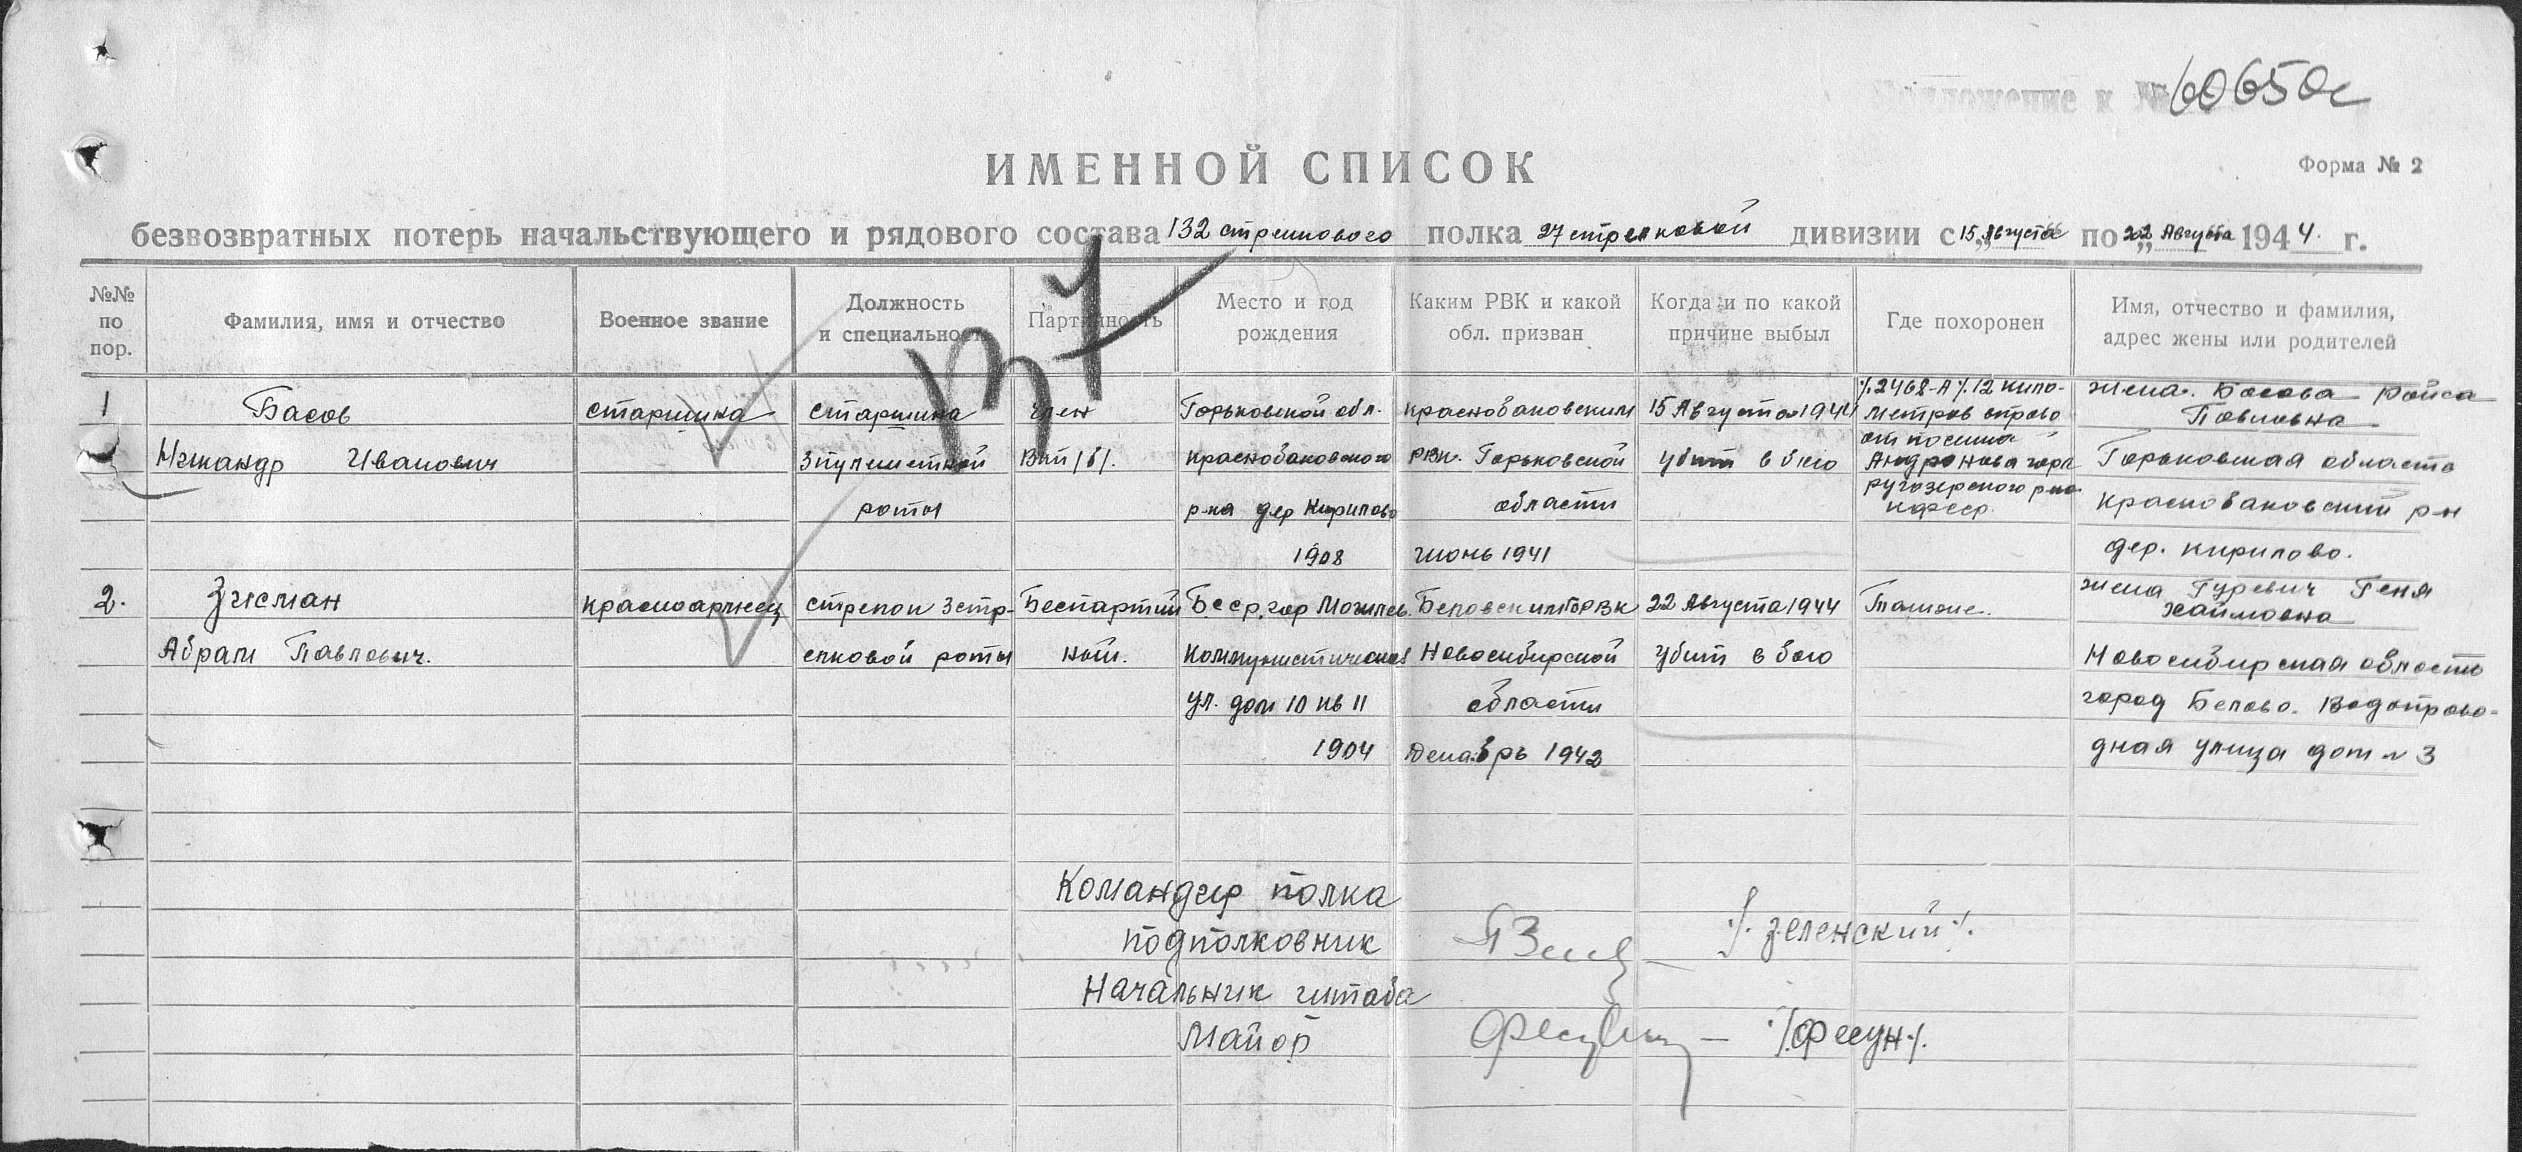 Приложение к № 60650с
ИМЕННОЙ СПИСОК
Форма № 2
безвозвратных потерь начальствующего и рядового состава 132 стрелкового полка 27 стрелковой дивизии с „15 Августа по „22 Августа 1944 г.
№№ по пор.
Фамилия, имя и отчество
Военное звание
Должность и специальность
Партийность
Место и год рождения
Каким РВК и какой обл. призван
Когда и по какой причине выбыл
Где похоронен
Имя, отчество и фамилия, адрес жены или родителей
1
Басов
Никандр Иванович
старшина
старшина
3 пулеметной
роты
член
ВКП/б/.
Горьковской обл.
Краснобаковского
р-на дер Кирилово
1908
Краснобаковским
РВК. Горьковской
области
июнь 1941
15 Августа 1944
убит в бою
/.2468-А/.12 кило-
метров вправо
от поселка
Андронова гора
ругозерского р-на
КФССР
жена. Басова Раиса
Павловна
Горьковская область
Краснобаковский р-н
дер. Кирилово.
2.
Зисман
Абрам Павлович.
красноармеец
стрелок 3 стр-
елковой роты
Беспартий
ный.
БССР, гор Могилев.
Коммунистическая
ул. дом 10 кв 11
1904
Беловским ГорВК
Новосибирской
области
Декабрь 1942
22 Августа 1944
убит в бою
Там же.
жена Гуревич Геня
Хаймовна
Новосибирская область
город Белово. Водопрово-
дная улица дом № 3
Командир полка
подполковник
/. Зеленский /.
Начальник штаба
Майор
/. Фесун /.